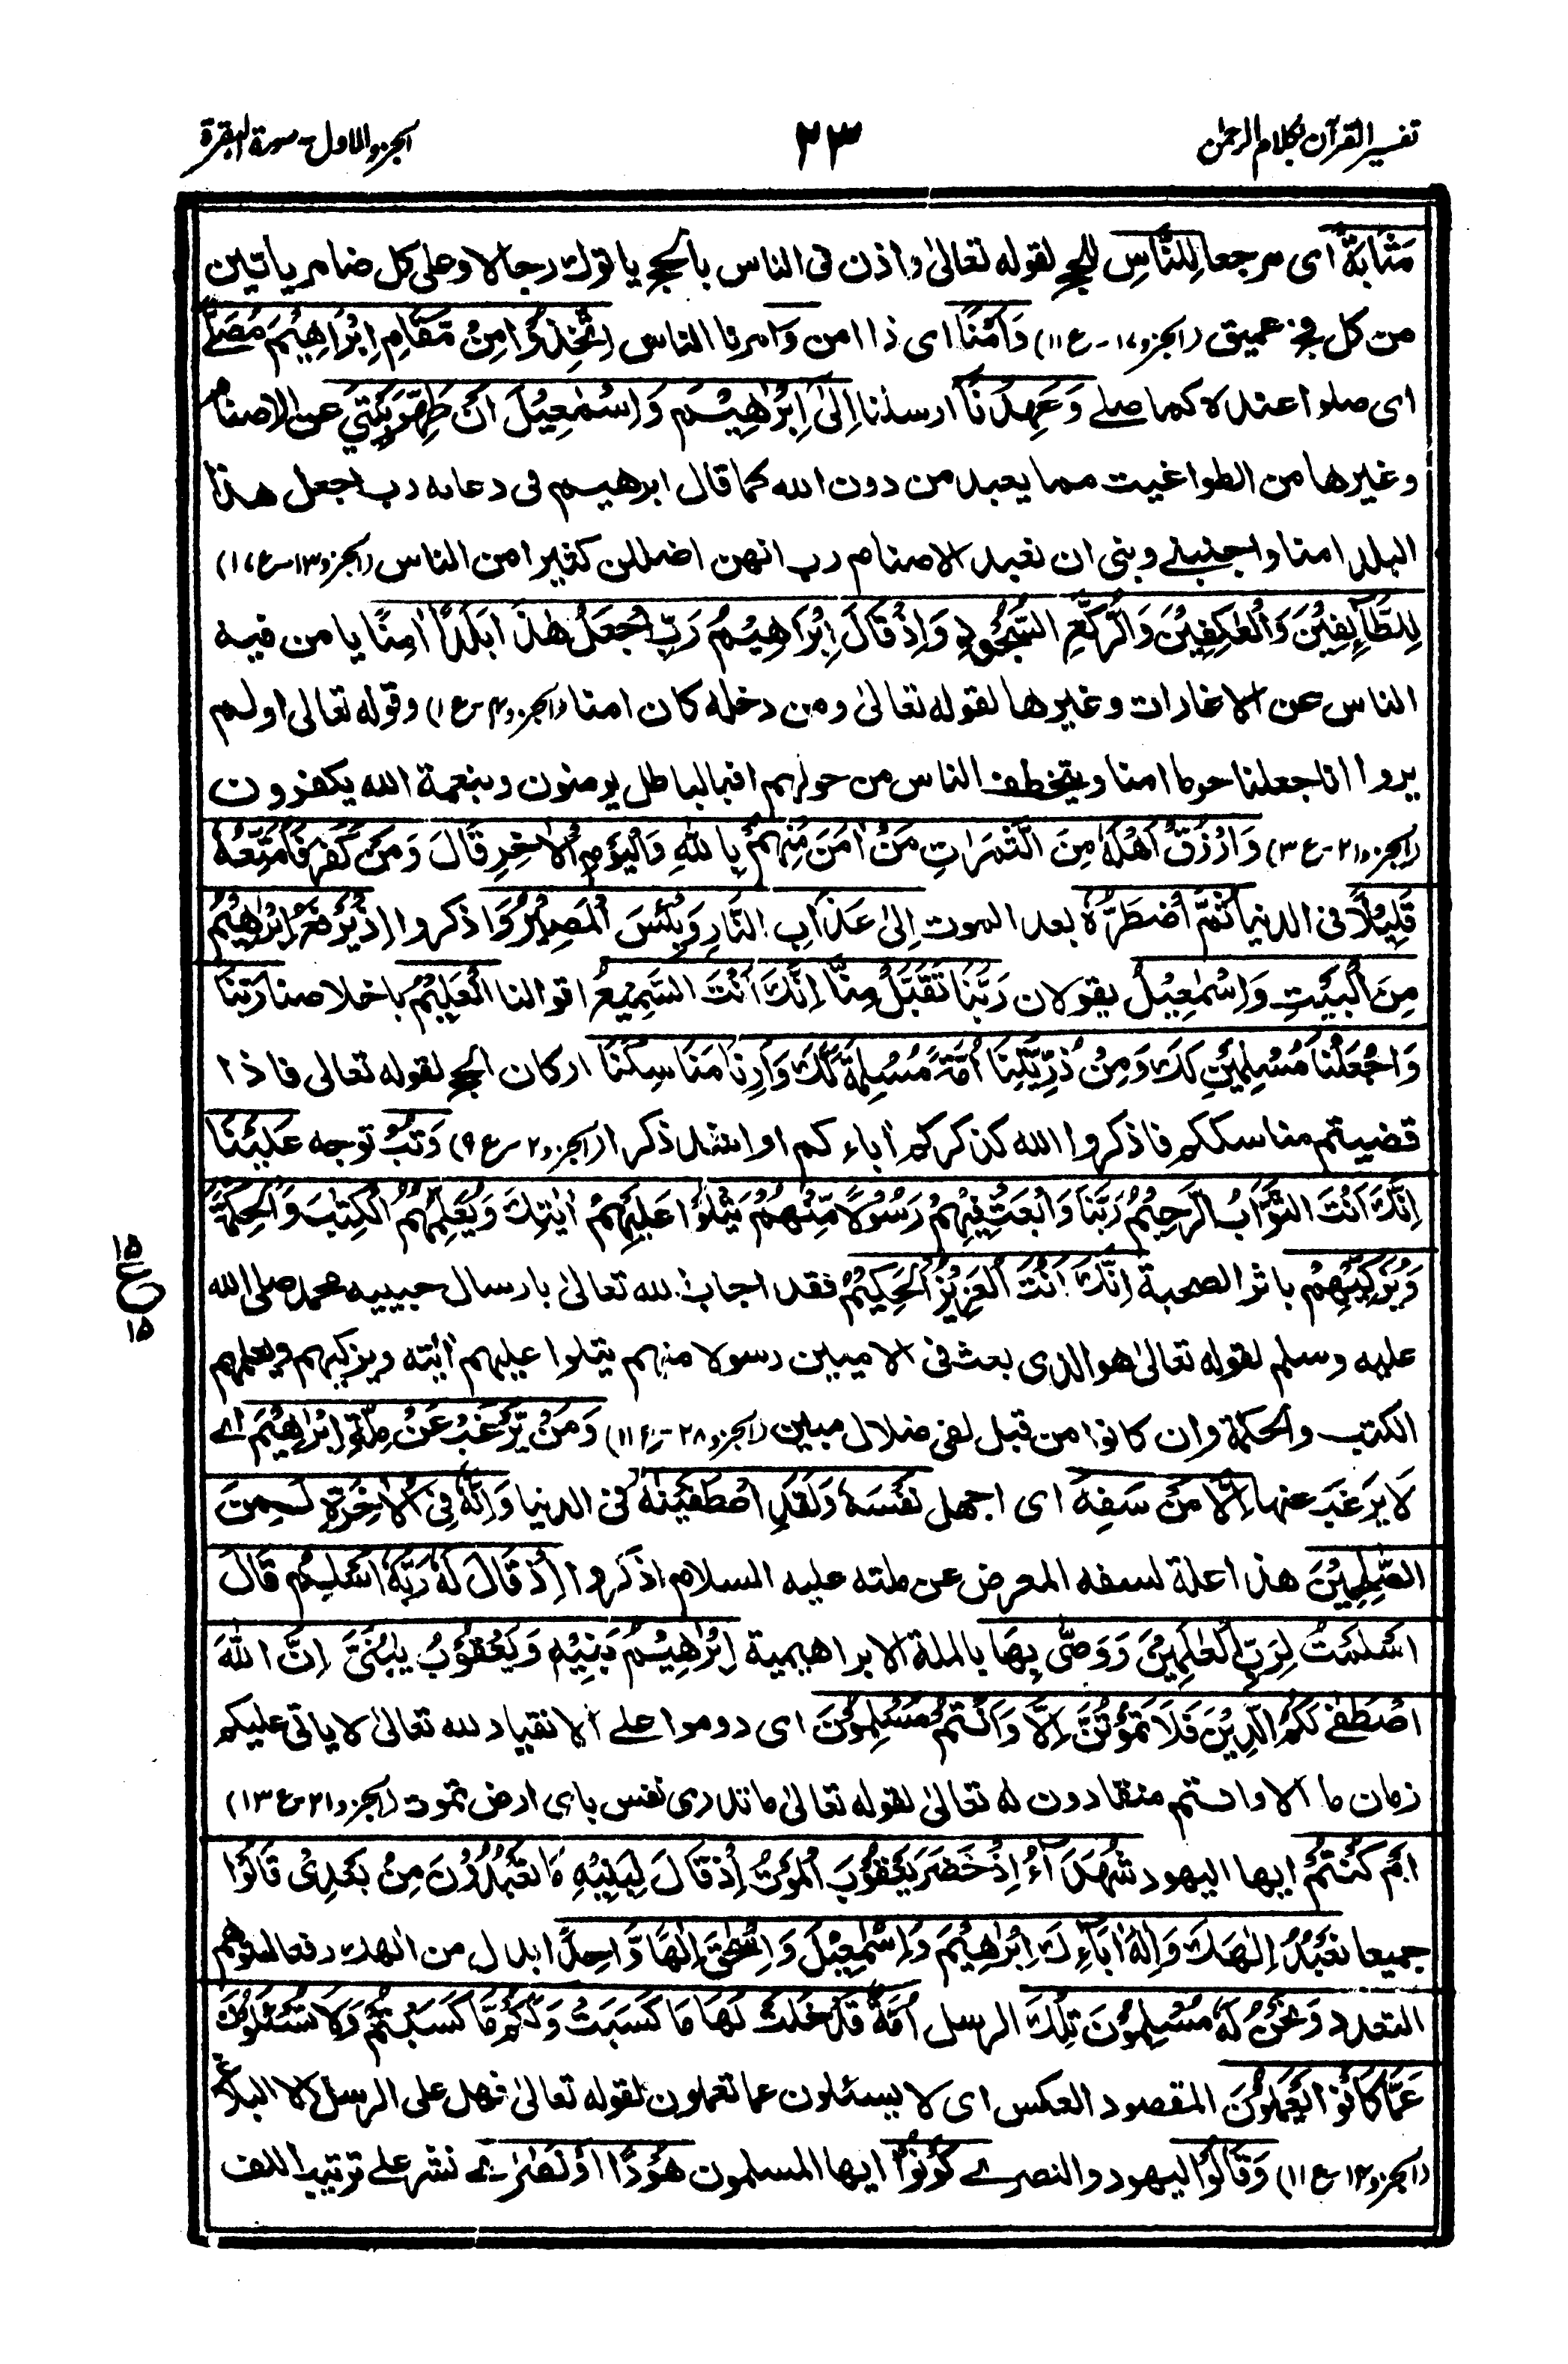 تفسير القرآن بكلام الرحمٰن
٢٣
الجزء الاول - سورة البقرة
مَثَابَةً اى مرجعا لِلنَّاسِ للحج لقوله تعالىٰ واذن فى الناس بالحج ياتوك رجالا وعلى كل ضامر ياتين
من كل فج عميق (الجزء١٧-ع١١) وَاَمْنًا اى ذا امن وَامرنا الناس اتَّخِذُوْا مِنْ مَّقَامِ اِبْرَاهِيْمَ مُصَلًّے
اى صلوا عنده كما صلے وَعَهِدْنَا ارسلنا اِلىٰٓ اِبْرٰهٖيْمَ وَاِسْمٰعِيْلَ اَنْ طَهِّرَ بَيْتِيَ عن الاصنام
وغيرها من الطواغيت مما يعبد من دون الله كما قال ابرهيم فى دعائه رب اجعل هذا
البلد امنا واجنبنے وبنى ان نعبد الاصنام رب انهن اضللن كثيرا من الناس (الجزء١٣-ع١٧)
لِلطَّآئِفِيْنَ وَالْعٰكِفِيْنَ وَالرُّكَّعِ السُّجُوْدِ وَاِذْ قَالَ اِبْرَاهِيْمُ رَبِّ اجْعَلْ هٰذَا بَلَدًا اٰمِنًا يا من فيه
الناس عن الاغارات وغيرها لقوله تعالىٰ ومن دخله كان امنا (الجزء٤-ع١) وقوله تعالى اولم
يروا انا جعلنا حرما امنا ويتخطف الناس من حولهم افبالباطل يومنون وبنعمة الله يكفرون
(الجزء٢١-ع٣) وَارْزُقْ اَهْلَهٗ مِنَ الثَّمَرٰتِ مَنْ اٰمَنَ مِنْهُمْ بِاللّٰهِ وَالْيَوْمِ الْاٰخِرِ قَالَ وَمَنْ كَفَرَ فَاُمَتِّعُهٗ
قَلِيْلًا فى الدنيا ثُمَّ اَضْطَرُّهٗ بعد الموت اِلىٰ عَذَابِ النَّارِ وَبِئْسَ الْمَصِيْرُ وَاذكروا اِذْ يَرْفَعُ اِبْرٰهِيْمُ
مِنَ الْبَيْتِ وَاِسْمٰعِيْلُ يقولان رَبَّنَا تَقَبَّلْ مِنَّا اِنَّكَ اَنْتَ السَّمِيْعُ اقوالنا الْعَلِيْمُ باخلاصنا رَبَّنَا
وَاجْعَلْنَا مُسْلِمَيْنِ لَكَ وَمِنْ ذُرِّيَّتِنَا اُمَّةً مُّسْلِمَةً لَّكَ وَاَرِنَا مَنَاسِكَنَا اركان الحج لقوله تعالى فاذا
قضيتم مناسككم فاذكروا الله كذكركم اٰباءكم او اشد ذكرا (الجزء٢-ع٩) وَتُبْ توجه عَلَيْنَا
اِنَّكَ اَنْتَ التَّوَّابُ الرَّحِيْمُ رَبَّنَا وَابْعَثْ فِيْهِمْ رَسُوْلًا مِّنْهُمْ يَتْلُوْا عَلَيْهِمْ اٰيٰتِكَ وَيُعَلِّمُهُمُ الْكِتٰبَ وَالْحِكْمَةَ
ع ١٥ ١٥
وَيُزَكِّيْهِمْ باثر الصحبة اِنَّكَ اَنْتَ الْعَزِيْزُ الْحَكِيْمُ فقد اجاب الله تعالىٰ بارسال حبيبه محمد صلى الله
عليه وسلم لقوله تعالىٰ هو الذى بعث فى الاميين رسولا منهم يتلوا عليهم اٰيٰته ويزكيهم ويعلمهم
الكتب والحكمة وان كانوا من قبل لفى ضلال مبين (الجزء٢٨-ع١١) وَمَنْ يَّرْغَبُ عَنْ مِلَّةِ اِبْرٰهِيْمَ اے
لَا يَرغَبَ عنها اِلَّا مَنْ سَفِهَ اى اجهل نَفْسَهٗ وَلَقَدِ اصْطَفَيْنٰهُ فى الدنيا وَاِنَّهٗ فِى الْاٰخِرَةِ لَمِنَ
الصّٰلِحِيْنَ هذا علة لسفه المعرض عن ملته عليه السلام اذكروا اِذْ قَالَ لَهٗ رَبُّهٗ اَسْلِمْ قَالَ
اَسْلَمْتُ لِرَبِّ الْعٰلَمِيْنَ وَوَصّٰى بِهَا بالملة الابراهيمية اِبْرٰهِيْمُ بَنِيْهِ وَيَعْقُوْبُ يٰبَنِيَّ اِنَّ اللّٰهَ
اصْطَفٰى لَكُمُ الدِّيْنَ فَلَا تَمُوْتُنَّ اِلَّا وَاَنْتُمْ مُّسْلِمُوْنَ اى دوموا علے الانقياد لله تعالىٰ لا ياتى عليكم
زمان ما الا وانتم منقادون له تعالىٰ لقوله تعالىٰ ما تدرى نفس باى ارض تموت (الجزء٢١-ع١٣)
اَمْ كُنْتُمْ ايها اليهود شُهَدَآءَ اِذْ حَضَرَ يَعْقُوْبَ الْمَوْتُ اِذْ قَالَ لِبَنِيْهِ مَا تَعْبُدُوْنَ مِنْ بَعْدِيْ قَالُوْا
جميعا نَعْبُدُ اِلٰهَكَ وَاِلٰهَ اٰبَآئِكَ اِبْرٰهِيْمَ وَاِسْمٰعِيْلَ وَاِسْحٰقَ اِلٰهًا وَّاحِدًا ابدال من الهك دفعا لتوهم
التعدد وَنَحْنُ لَهٗ مُسْلِمُوْنَ تِلْكَ الرسل اُمَّةٌ قَدْ خَلَتْ لَهَا مَا كَسَبَتْ وَلَكُمْ مَّا كَسَبْتُمْ وَلَا تُسْئَلُوْنَ
عَمَّا كَانُوْا يَعْمَلُوْنَ المقصود العكس اى لا يسئلون عما تعملون لقوله تعالىٰ فهل على الرسل الا البلٰغ
(الجزء١٤-ع١١) وَقَالُوْا اليهود والنصرے كُوْنُوْا ايها المسلمون هُوْدًا اَوْ نَصٰرٰے نشر علے ترتيب اللف